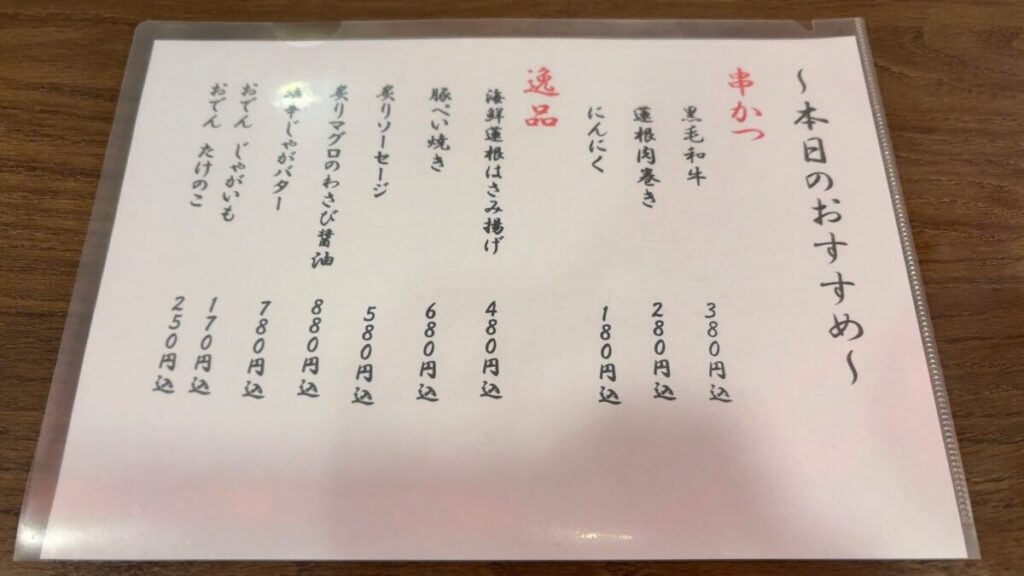 ～本日のおすすめ～
串かつ
黒毛和牛 380円込
蓮根肉巻き 280円込
にんにく 180円込
逸品
海鮮蓮根はさみ揚げ 480円込
豚ぺい焼き 680円込
炙りソーセージ 580円込
炙りマグロのわさび醤油 880円込
辛じゃがバター 780円込
おでん じゃがいも 170円込
おでん たけのこ 250円込